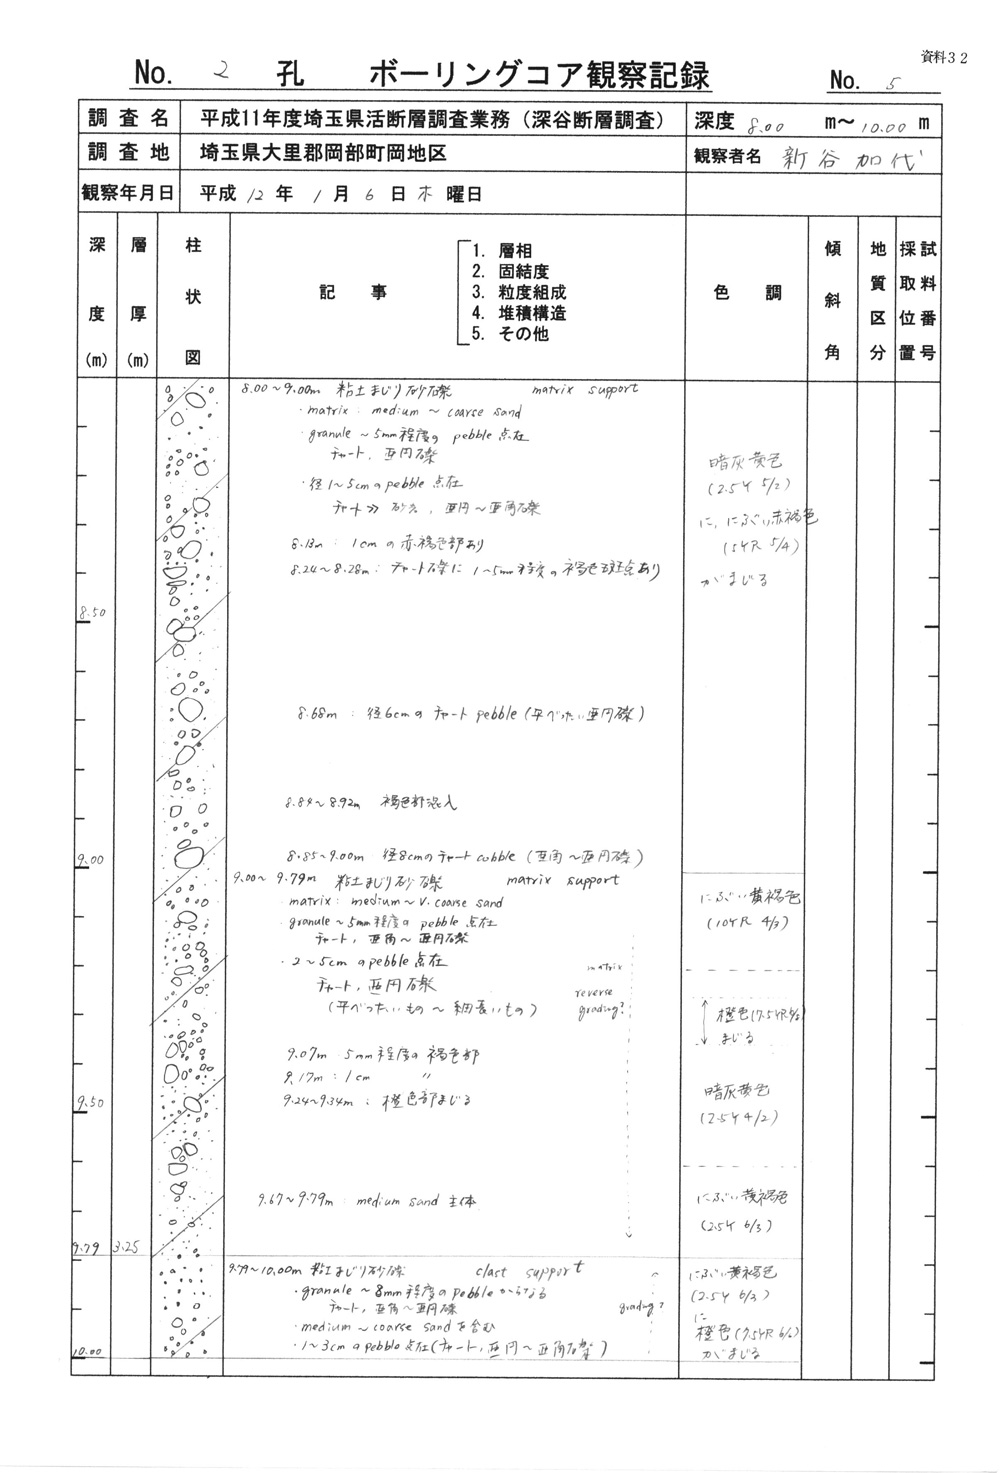 資料32
No. 2 孔 ボーリングコア観察記録 No. 5
調査名 平成11年度埼玉県活断層調査業務（深谷断層調査） 深度 8.00 m～10.00 m
調査地 埼玉県大里郡岡部町岡地区 観察者名 新谷加代
観察年月日 平成 12 年 1 月 6 日 木 曜日
深度(m) 層厚(m) 柱状図 記事 色調 傾斜角 地質区分 採取位置 試料番号
1. 層相
2. 固結度
3. 粒度組成
4. 堆積構造
5. その他
8.00～9.00m 粘土まじり砂礫 matrix support
・matrix: medium ～ coarse sand
・granule ～5mm程度の pebble 点在
チャート, 亜円礫
・径1～5cmのpebble 点在
チャート≫ 砂岩, 亜円～亜角礫
暗灰黄色
(2.5Y 5/2)
に, にぶい赤褐色
(5YR 5/4)
がまじる
8.13m: 1cmの赤褐色部あり
8.24～8.28m: チャート礫に 1～5mm程度の褐色斑点あり
8.50
8.68m : 径6cmのチャート pebble (平べったい亜円礫)
8.84～8.92m 褐色部混入
9.00
8.85～9.00m 径8cmのチャート cobble (亜角～亜円礫)
9.00～9.79m 粘土まじり砂礫 matrix support
・matrix: medium～v. coarse sand
granule～5mm程度の pebble 点在
チャート, 亜角～亜円礫
・2～5cmのpebble 点在
チャート, 亜円礫
(平べったいもの～細長いもの)
matrix
reverse
grading?
にぶい黄褐色
(10YR 4/3)
橙色(7.5YR 6/6)
まじる
9.07m 5mm程度の褐色部
9.17m : 1cm 〃
9.24～9.34m : 橙色部まじる
9.50
暗灰黄色
(2.5Y 4/2)
9.67～9.79m : medium sand 主体
にぶい黄褐色
(2.5Y 6/3)
9.79 3.25
9.79～10.00m 粘土まじり砂礫 clast support
・granule～8mm程度のpebbleからなる
チャート, 亜角～亜円礫
・medium～coarse sandを含む
・1～3cmのpebble点在(チャート, 亜円～亜角礫)
grading?
にぶい黄褐色
(2.5Y 6/3)
に
橙色(7.5YR 6/6)
がまじる
10.00